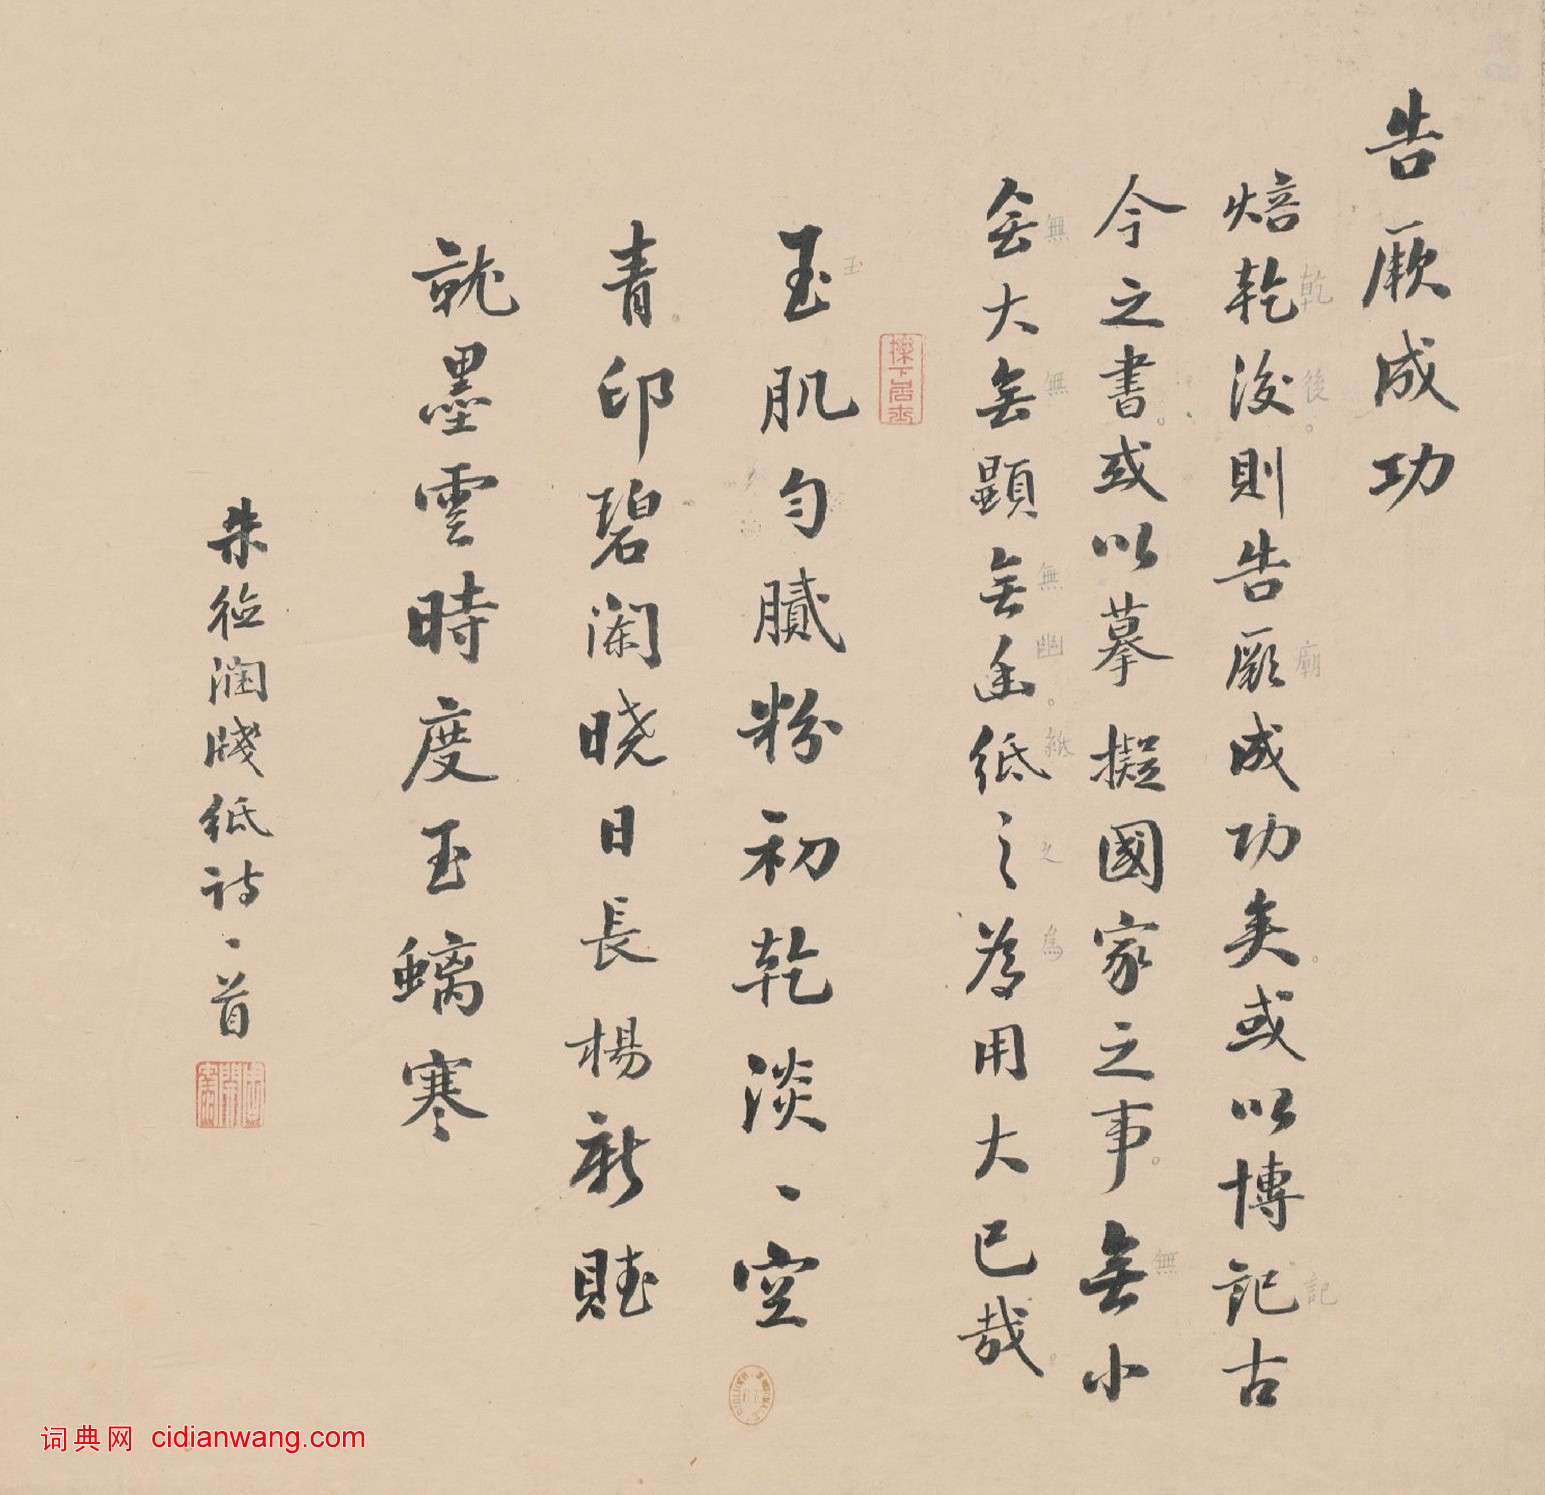 告厥成功
焙乾後則告厥成功矣或以博記古
今之書或以摹擬國家之事無小
無大無顯無幽紙之為用大已哉
玉肌勻膩粉初乾淡淡空
青印碧闌曉日長楊新賦
就墨雲時度玉螭寒
朱德潤牋紙詩一首
無
乾
後
無
無
幽
紙
之
為
廟
無
記
玉
词典网 cidianwang.com